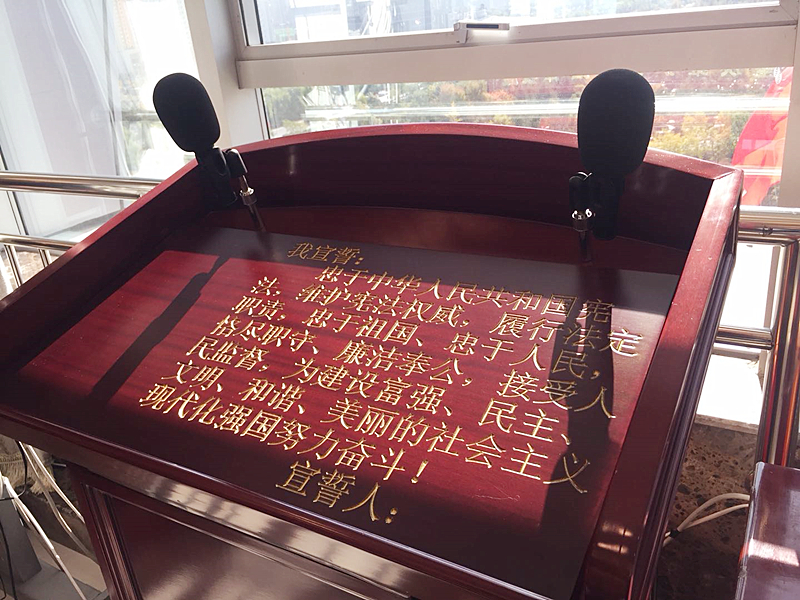 我宣誓：
忠于中华人民共和国宪
法，维护宪法权威，履行法定
职责，忠于祖国、忠于人民，
恪尽职守、廉洁奉公，接受人
民监督，为建设富强、民主、
文明、和谐、美丽的社会主义
现代化强国努力奋斗！
宣誓人：